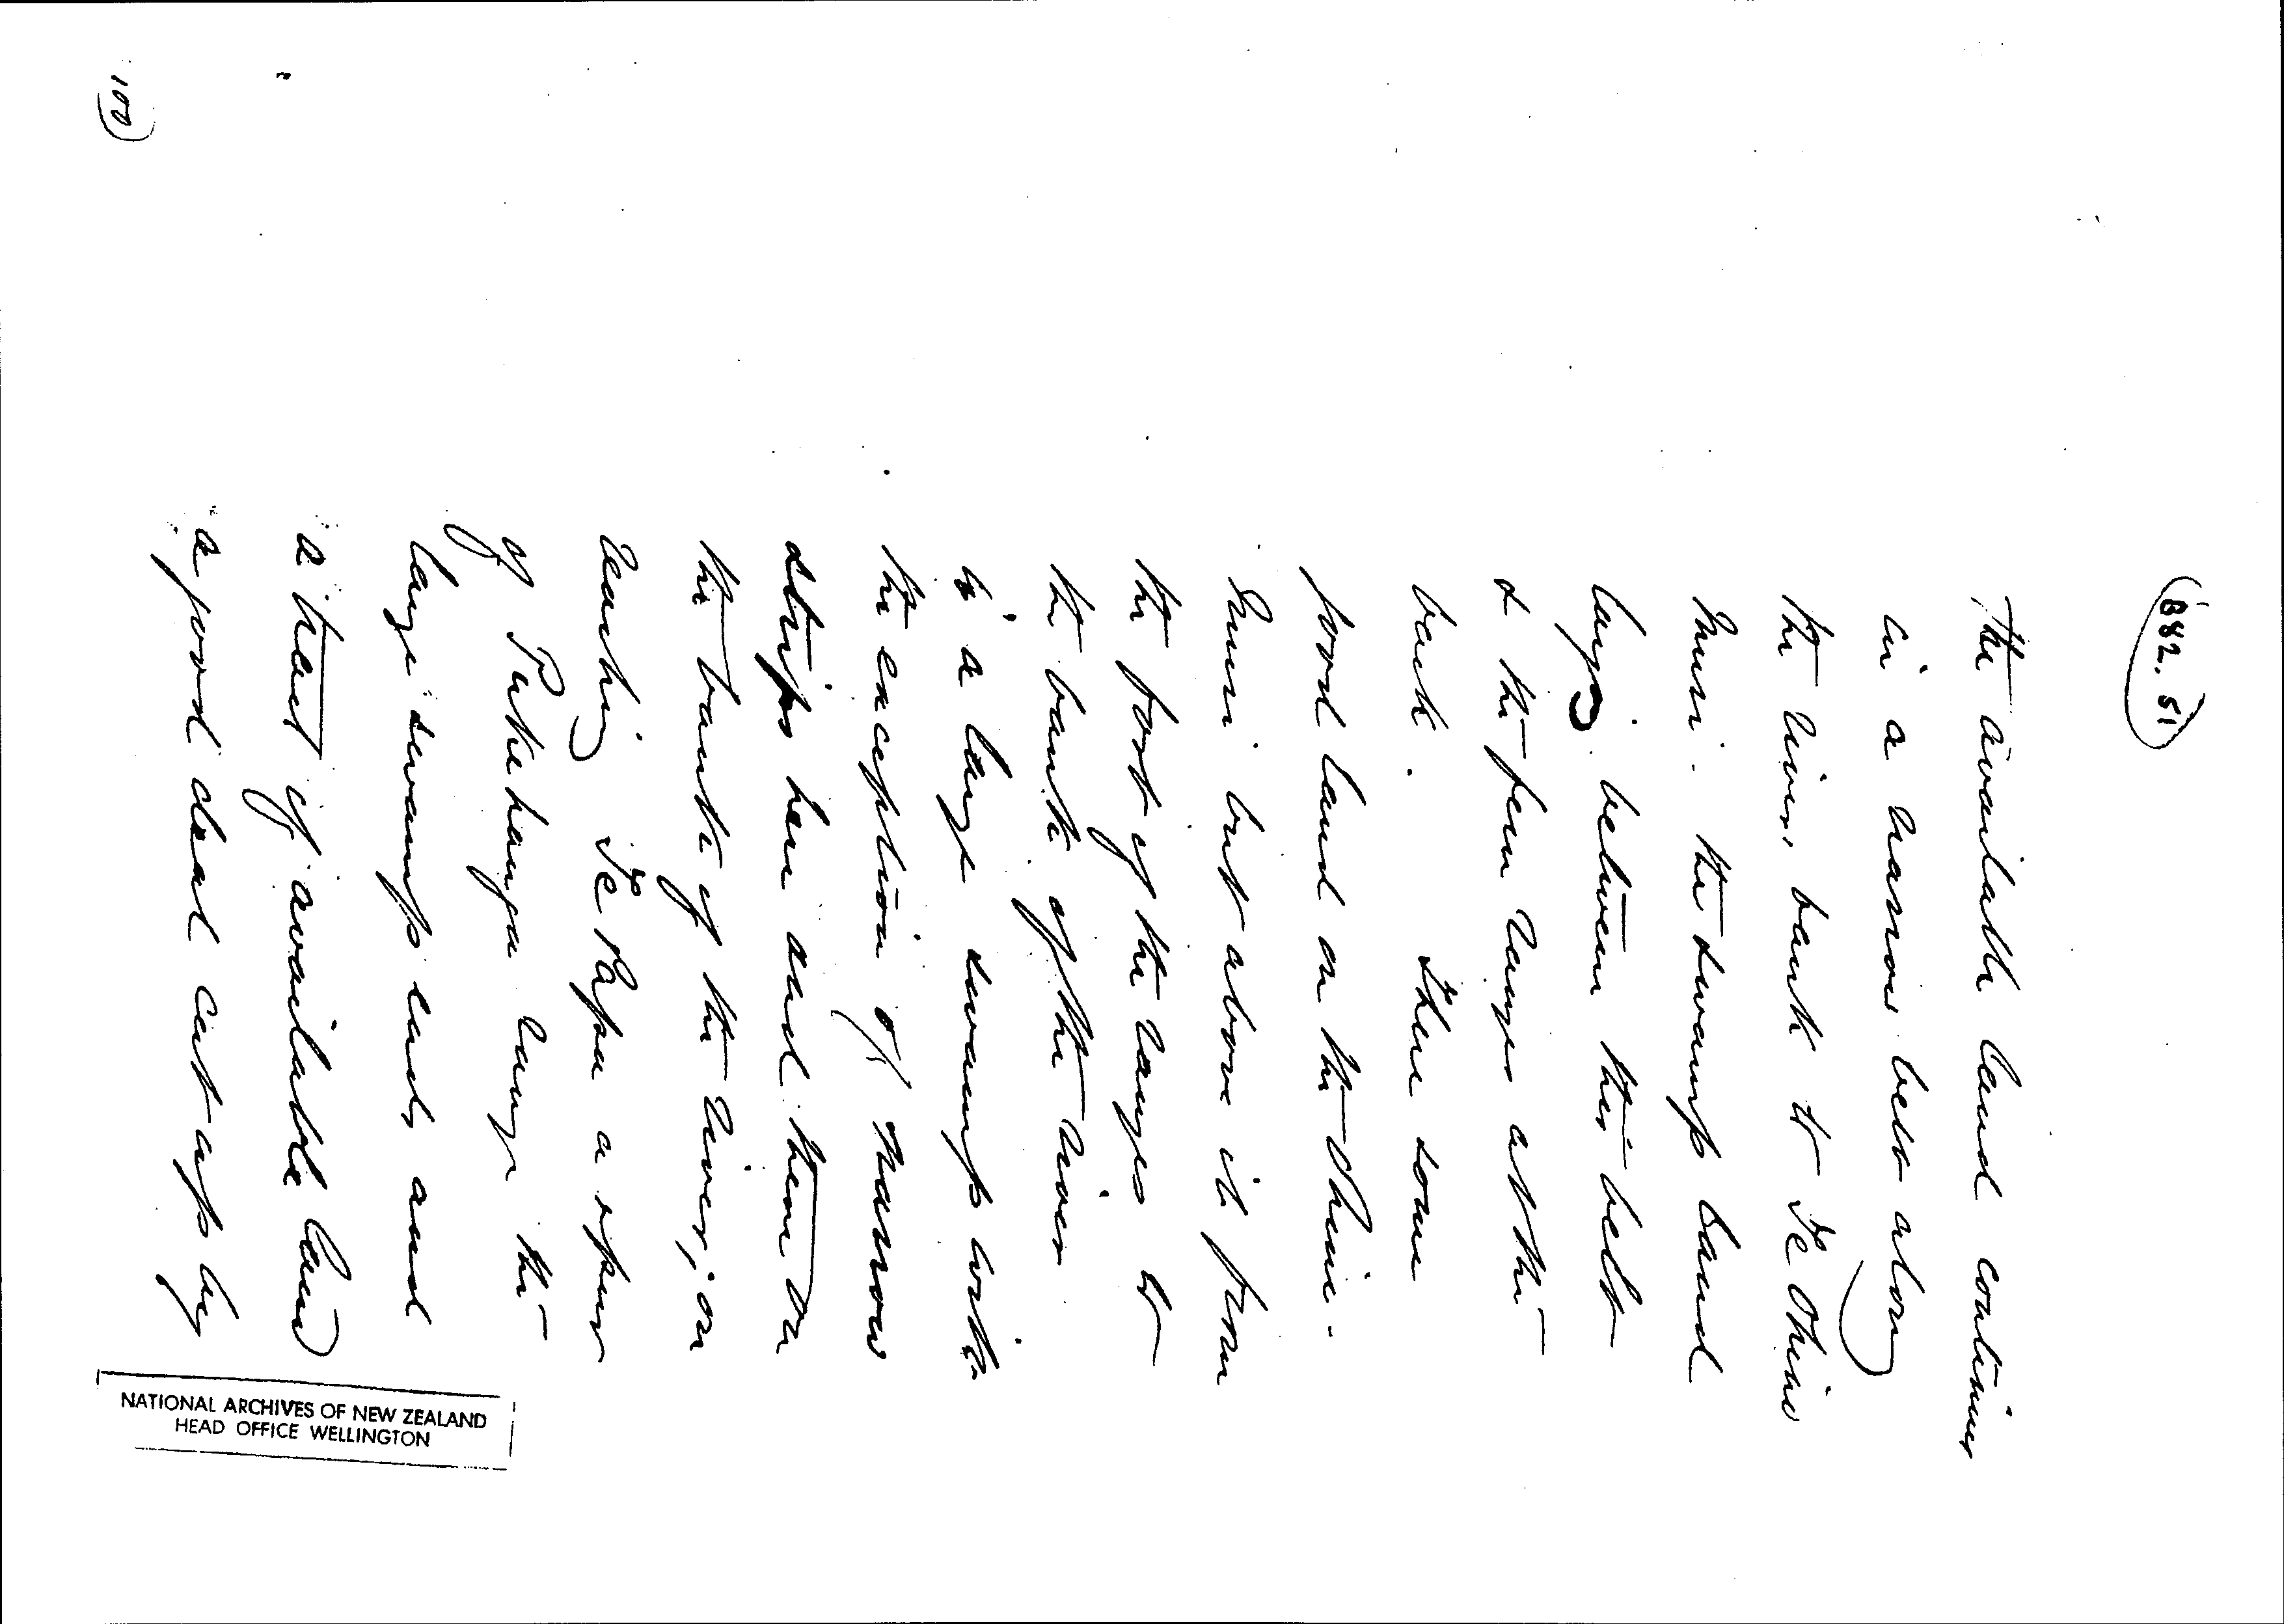 B82.51
The available land continues
in a narrow belt along
the river bank to Te Ohine
Muri. the swamp land
lays between this belt
& the fern ranges at the
back. There some
good land on the Ohine-
Muri but above it from
the foot of the ranges to
the bank of the river
is a large swamp with
the exception of narrow
strips here and there on
the bank of the river; on
reaching Te Papa a spur
of Pukehanga range the
large swamp ends and
a tract of available land
a good deal cut up by
100
NATIONAL ARCHIVES OF NEW ZEALAND
HEAD OFFICE WELLINGTON